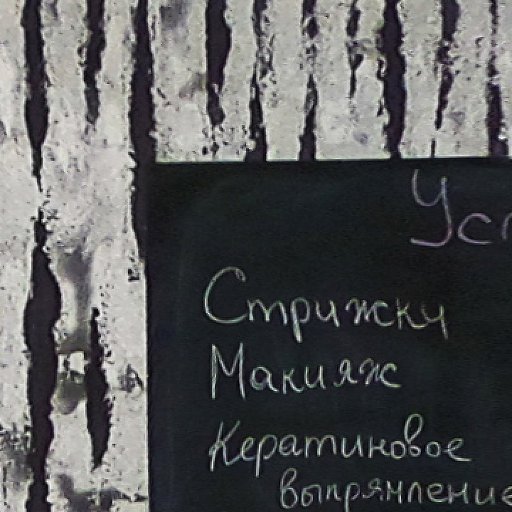 Ус
Стрижки
Макияж
Кератиновое
выпрямление